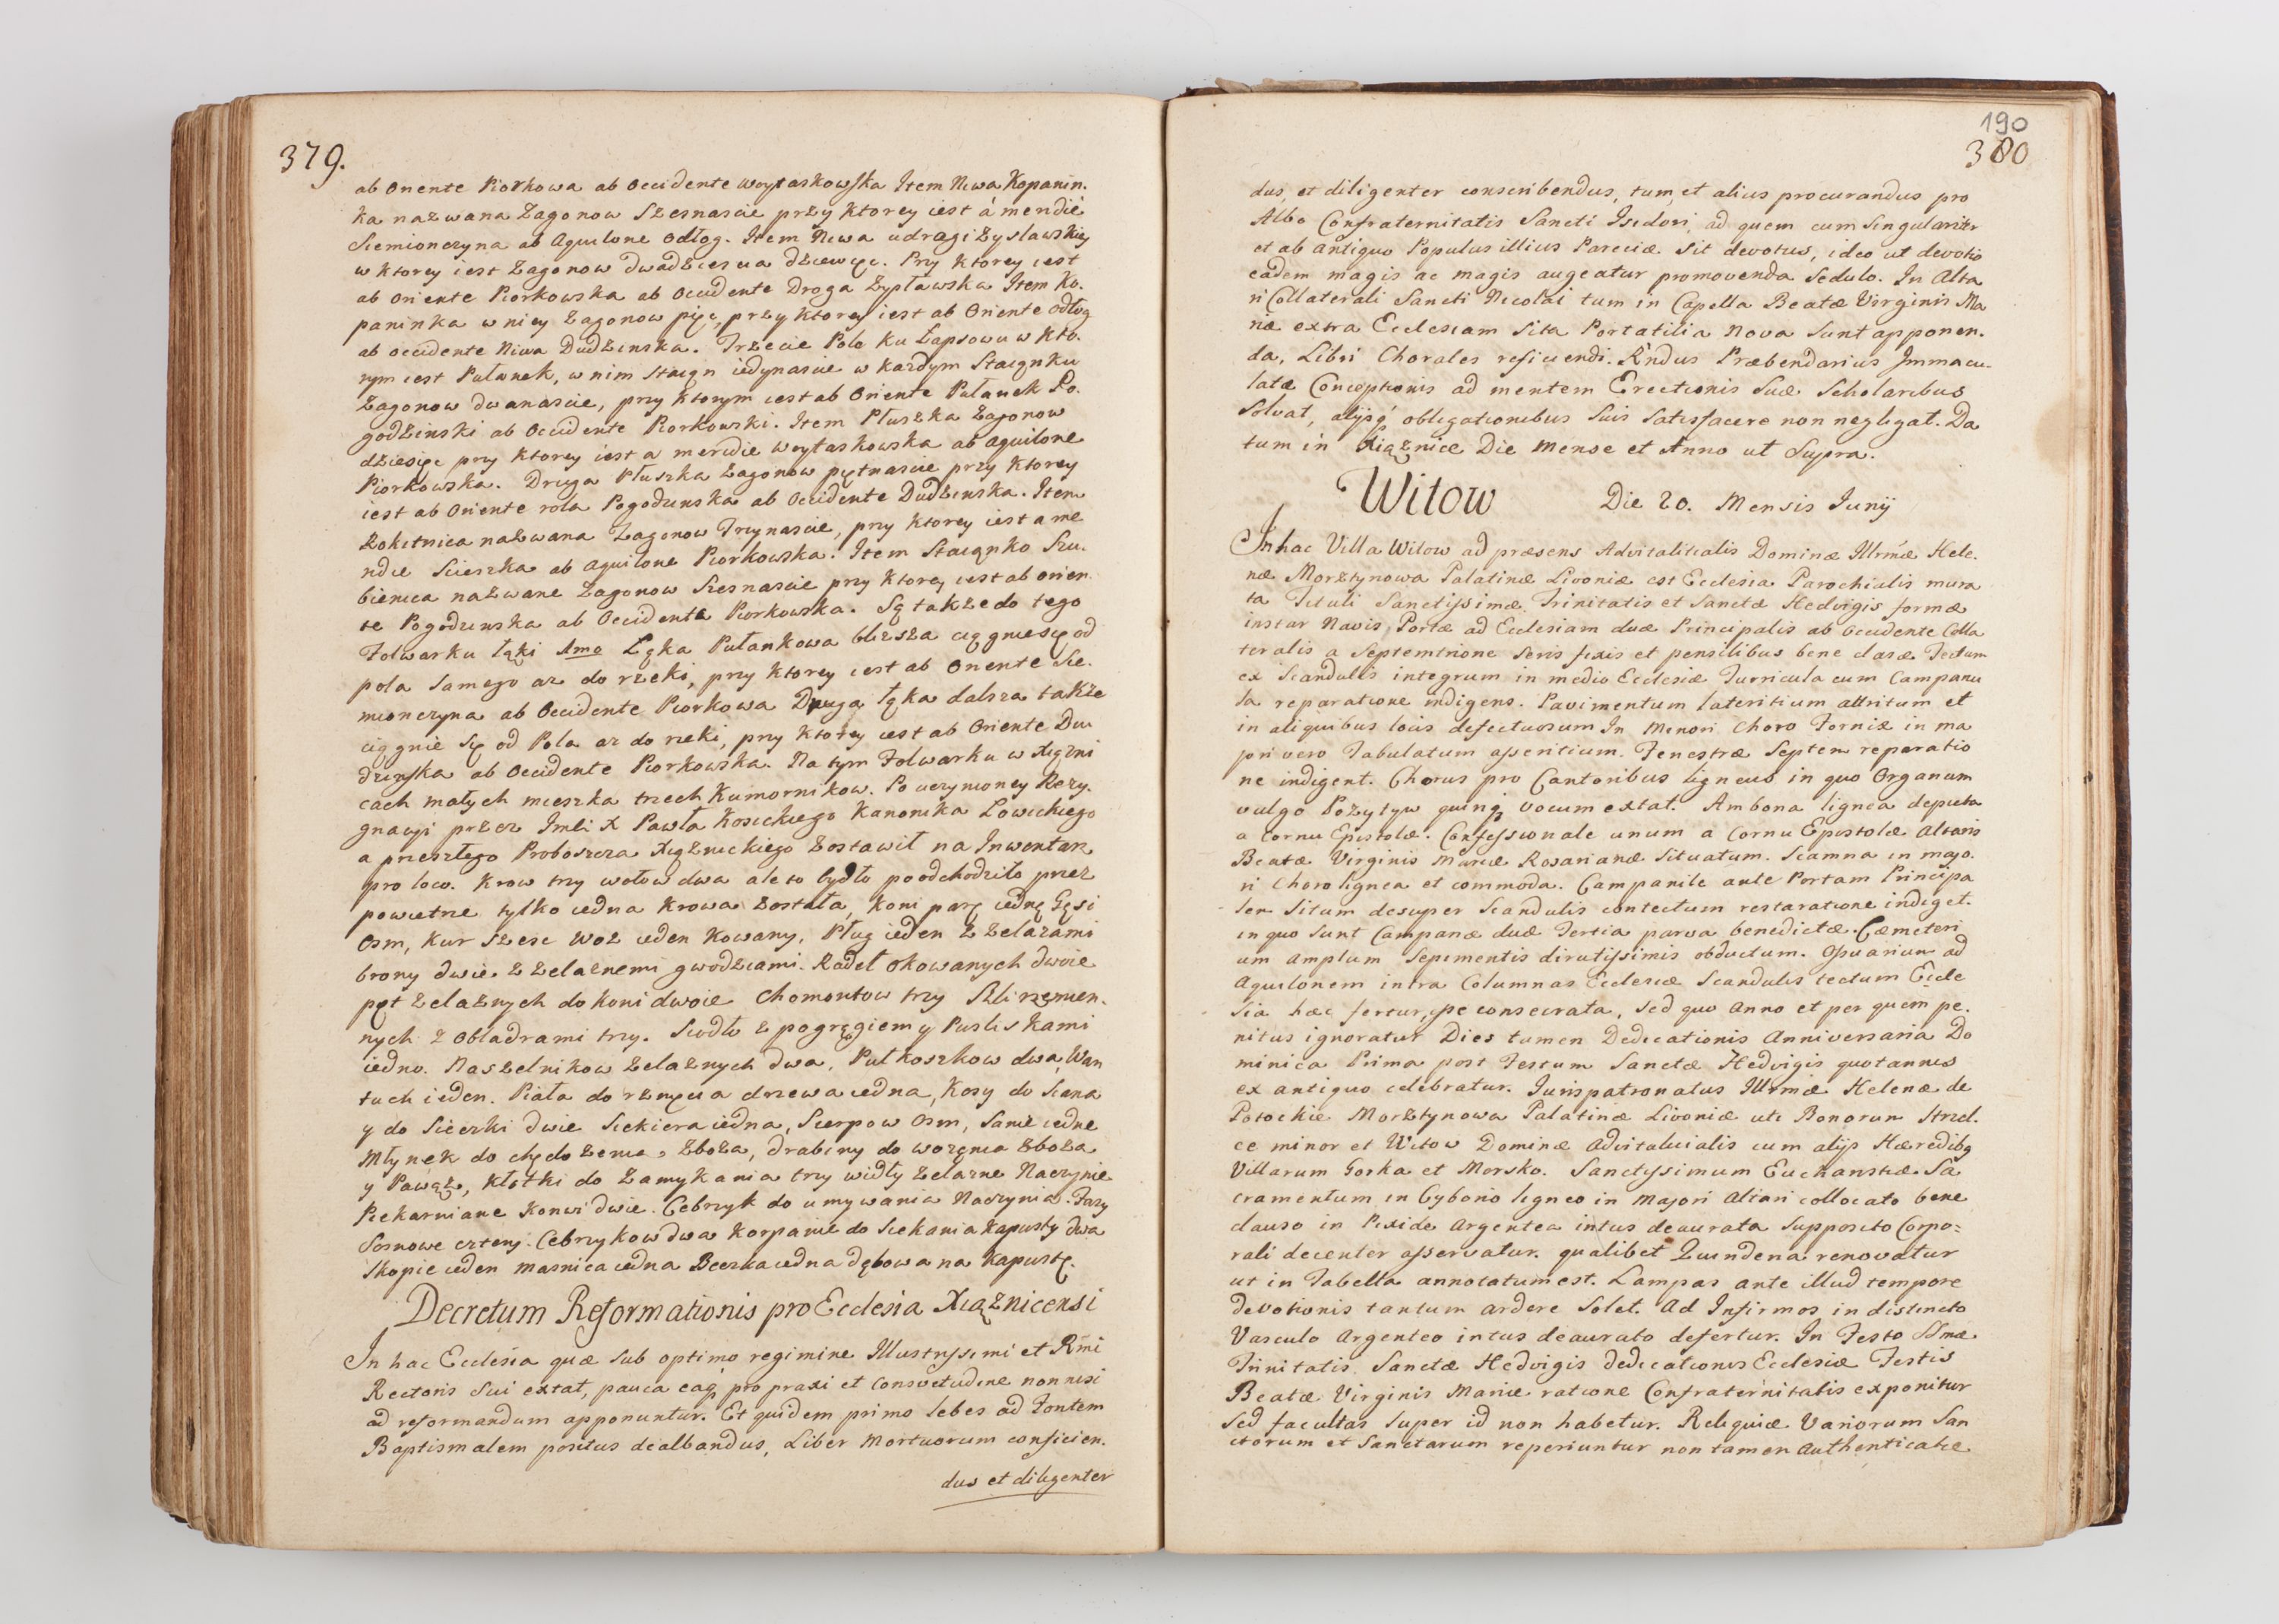 379.
ab Oriente Piorkowa ab Occidente Woytaskowska Item Niwa Kopanin.
ka nazwana Zagonow Szesnascie przy ktorey iest á meridie
Siemionczyna ab Aquilone Odłog. Item Niwa udragi Zyslawskiey
w ktorey iest Zagonow dwadziescia dziewięc. Przy ktorey iest
ab Oriente Piorkowska ab Occidente Droga Zysławska Item Ko.
paninka w niey Zagonow pięc, przy ktorey iest ab Oriente odłog
ab occidente Niwa Dudzinska. Trzecie Pole ku Łapsowu w kto.
rym iest Pułanek, w nim Staign iedynascie w kazdym Staignku
Zagonow dwanascie, przy ktorym iest ab Oriente Pułanek Po.
godzinski ab Occidente Piorkowski. Item Płuszka Zagonow
dziesięc przy ktorey iest a meridie Woytaskowska ab aquilone
Piorkowska. Druga Płuszka Zagonow piętnascie przy ktorey
iest ab Oriente rola Pogodzinska ab Occidente Dudzinska. Item
Rokitnica nazwana Zagonow Trzynascie, przy ktorey iest a me
ridie Scieszka ab aquilone Piorkowska. Item Staignko Szu.
bienica nazwane Zagonow Szesnascie przy ktorey iest ab orien
te Pogodzinska ab Occidente Piorkowska. Są takze do tego
Folwarku łąki 1mo Łąka Pułankowa blizsza ciągnie się od
pola samego az do rzeki, przy ktorey iest ab Oriente Sie.
mionczyna ab Occidente Piorkowa Druga łąka dalsza takze
ciągnie się od Pola az do rzeki, przy ktorey iest ab Oriente Du
dzinska ab Occidente Piorkowska. Na tym Folwarku w Xiązni
cach małych mieszka trzech Kumornikow. Po uczynioney Rezy.
gnacyi przez Imści X Pawła Kosickiego Kanonika Łowickiego
a przeszłego Proboszcza Xiąznickiego Zostawił na Inwentarz
pro loco. Krow trzy wołow dwa ale to bydło poodchodziło przez
powietrze tylko iedna Krowa Została, koni parę iednę Gęsi
Osm, Kur szesc Woz ieden Kowany, Pług ieden z zelazami
brony dwie z zelaznemi gwozdziami. Radeł okowanych dwoie
pęt zelaznych do koni dwoie Chomontow trzy Szli rzemien.
nych z Obładrami trzy. Siodło z pogręgiem y Pusliskami
iedno. Naszelnikow zelaznych dwa, Pułkoszkow dwa, Wan
tuch ieden. Piała do rznięcia drzewa iedna, Kosy do Siana
y do Sieczki dwie Siekiera iedna, Sierpow Osm, Sanie iedne
Młynek do chędozenia zboza, drabiny do wozęnia zboza
y Pawąz, Kłotki do Zamykania trzy widły zelazne Naczynie
Piekarniane Konwi dwie. Cebrzyk do umywania Naczynia. Fasy
Sosnowe cztery. Cebrzykow dwa Korpanie do Siekania kapusty dwa
Skopie ieden Masnica iedna Beczka iedna dębowa na Kapustę.
Decretum Reformationis pro Ecclesia Xiąznicensi
In hac Ecclesia quæ sub optimo regimine Illustrissimi et Rmi
Rectoris sui extat, pauca eaq pro praxi et consvetudine non nisi
ad reformandum apponuntur. Et quidem primo Lebes ad Fontem
Baptismalem positus dealbandus, Liber Mortuorum conficien.
dus et diligenter
190
380
dus, et diligenter conscribendus, tum, et alius procurandus pro
Albo Confraternitatis Sancti Isidori, ad quem cum singulariter
et ab antiquo Populus illius Pareciæ sit devotus, ideo ut devotio
eadem magis ac magis augeatur promovenda sedulo. In Alta
ri Collaterali Sancti Nicolai tum in Capella Beatæ Virginis Ma
riæ extra Ecclesiam sita Portatilia nova sunt apponen.
da, Libri Chorales reficiendi. Rndus Præbendarius Immacu.
latæ Conceptionis ad mentem Erectionis suæ Scholaribus
Solvat, alijsq obligationibus suis satisfacere non neglegat. Da
tum in Xiąznice Die Mense et Anno ut Supra.
Witow Die 20. Mensis Junij
In hac Villa Witow ad præsens Advitalitialis Dominæ Illrmæ Hele.
næ Morztynowa Palatinæ Livoniæ est Ecclesia Parochialis mura
ta Tituli Sanctissimæ Trinitatis et Sanctæ Hedvigis formæ
instar Navis, Portæ ad Ecclesiam duæ Principalis ab Occidente Colla
teralis a Septemtrione Seris fixis et pensilibus bene clasæ Tectum
ex Scandulis integrum in medio Ecclesiæ Turricula cum Campanu
la reparatione indigens. Pavimentum lateritium attritum et
in aliquibus locis defectuosum In Menori Choro Forniæ in ma
jori vero Tabulatum asseritium. Fenestræ Septem reparatio
ne indigent. Chorus pro Cantoribus ligneus in quo Organum
vulgo Pozytyw quinq vocum extat. Ambona lignea depicta
a Cornu Epistolæ. Confessionale unum a Cornu Epistolæ Altaris
Beatæ Virginis Mariæ Rosarianæ Situatum. Scamna in majo.
ri Choro lignea et commoda. Campanile ante Portam Principa
lem Situm desuper Scandulis contectum restaratione indiget.
in quo sunt Campanæ duæ Tertia parva benedictæ. Cæmeteri
um amplum Sepimentis dirutissimis obductum. Ossuarium ad
Aquilonem intra Columnas Ecclesiæ Scandulis tectum Eccle
sia hæc fertur esse consecrata, sed quo Anno et per quem pe.
nitus ignoratur Dies tamen Dedicationis Anniversaria Do
minica Prima post Festum Sanctæ Hedvigis quotannis
ex antiquo celebratur. Jurispatronatus Illrmæ Helenæ de
Potockie Morztynowa Palatinæ Livoniæ uti Bonorum Strzel.
ce minor et Witow Dominæ Advitalicialis cum alijs Hæredibq
Villarum Gorka et Morsko. Sanctissimum Eucharistiæ Sa
cramentum in Cyborio ligneo in Majori Altari collocato bene
clauso in Pixide Argentea intus deaurata supposito Corpo=
rali decenter asservatur. qualibet Quindena renovatur
ut in Tabella annotatum est. Lampas ante illud tempore
devotionis tantum ardere solet. Ad Infirmos in distincto
Vasculo Argenteo intus deaurato defertur. In Festo SSmæ
Trinitatis, Sanctæ Hedvigis dedicationis Ecclesiæ Festis
Beatæ Virginis Mariæ ratione Confraternitatis exponitur
Sed facultas super id non habetur. Reliquiæ Variorum San
ctorum et Sanctarum reperiuntur non tamen Authenticatæ